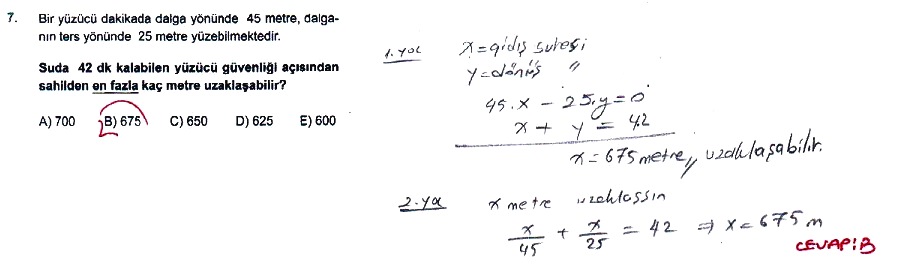 7. Bir yüzücü dakikada dalga yönünde 45 metre, dalga-
nın ters yönünde 25 metre yüzebilmektedir.
Suda 42 dk kalabilen yüzücü güvenliği açısından
sahilden en fazla kaç metre uzaklaşabilir?
A) 700 B) 675 C) 650 D) 625 E) 600
1. yol x = gidiş süresi
y = dönüş "
45.x - 25.y = 0
x + y = 42
x = 675 metre,, uzaklaşabilir.
2. yol x metre uzaklaşsın
x/45 + x/25 = 42 ⇒ x = 675 m
CEVAP: B